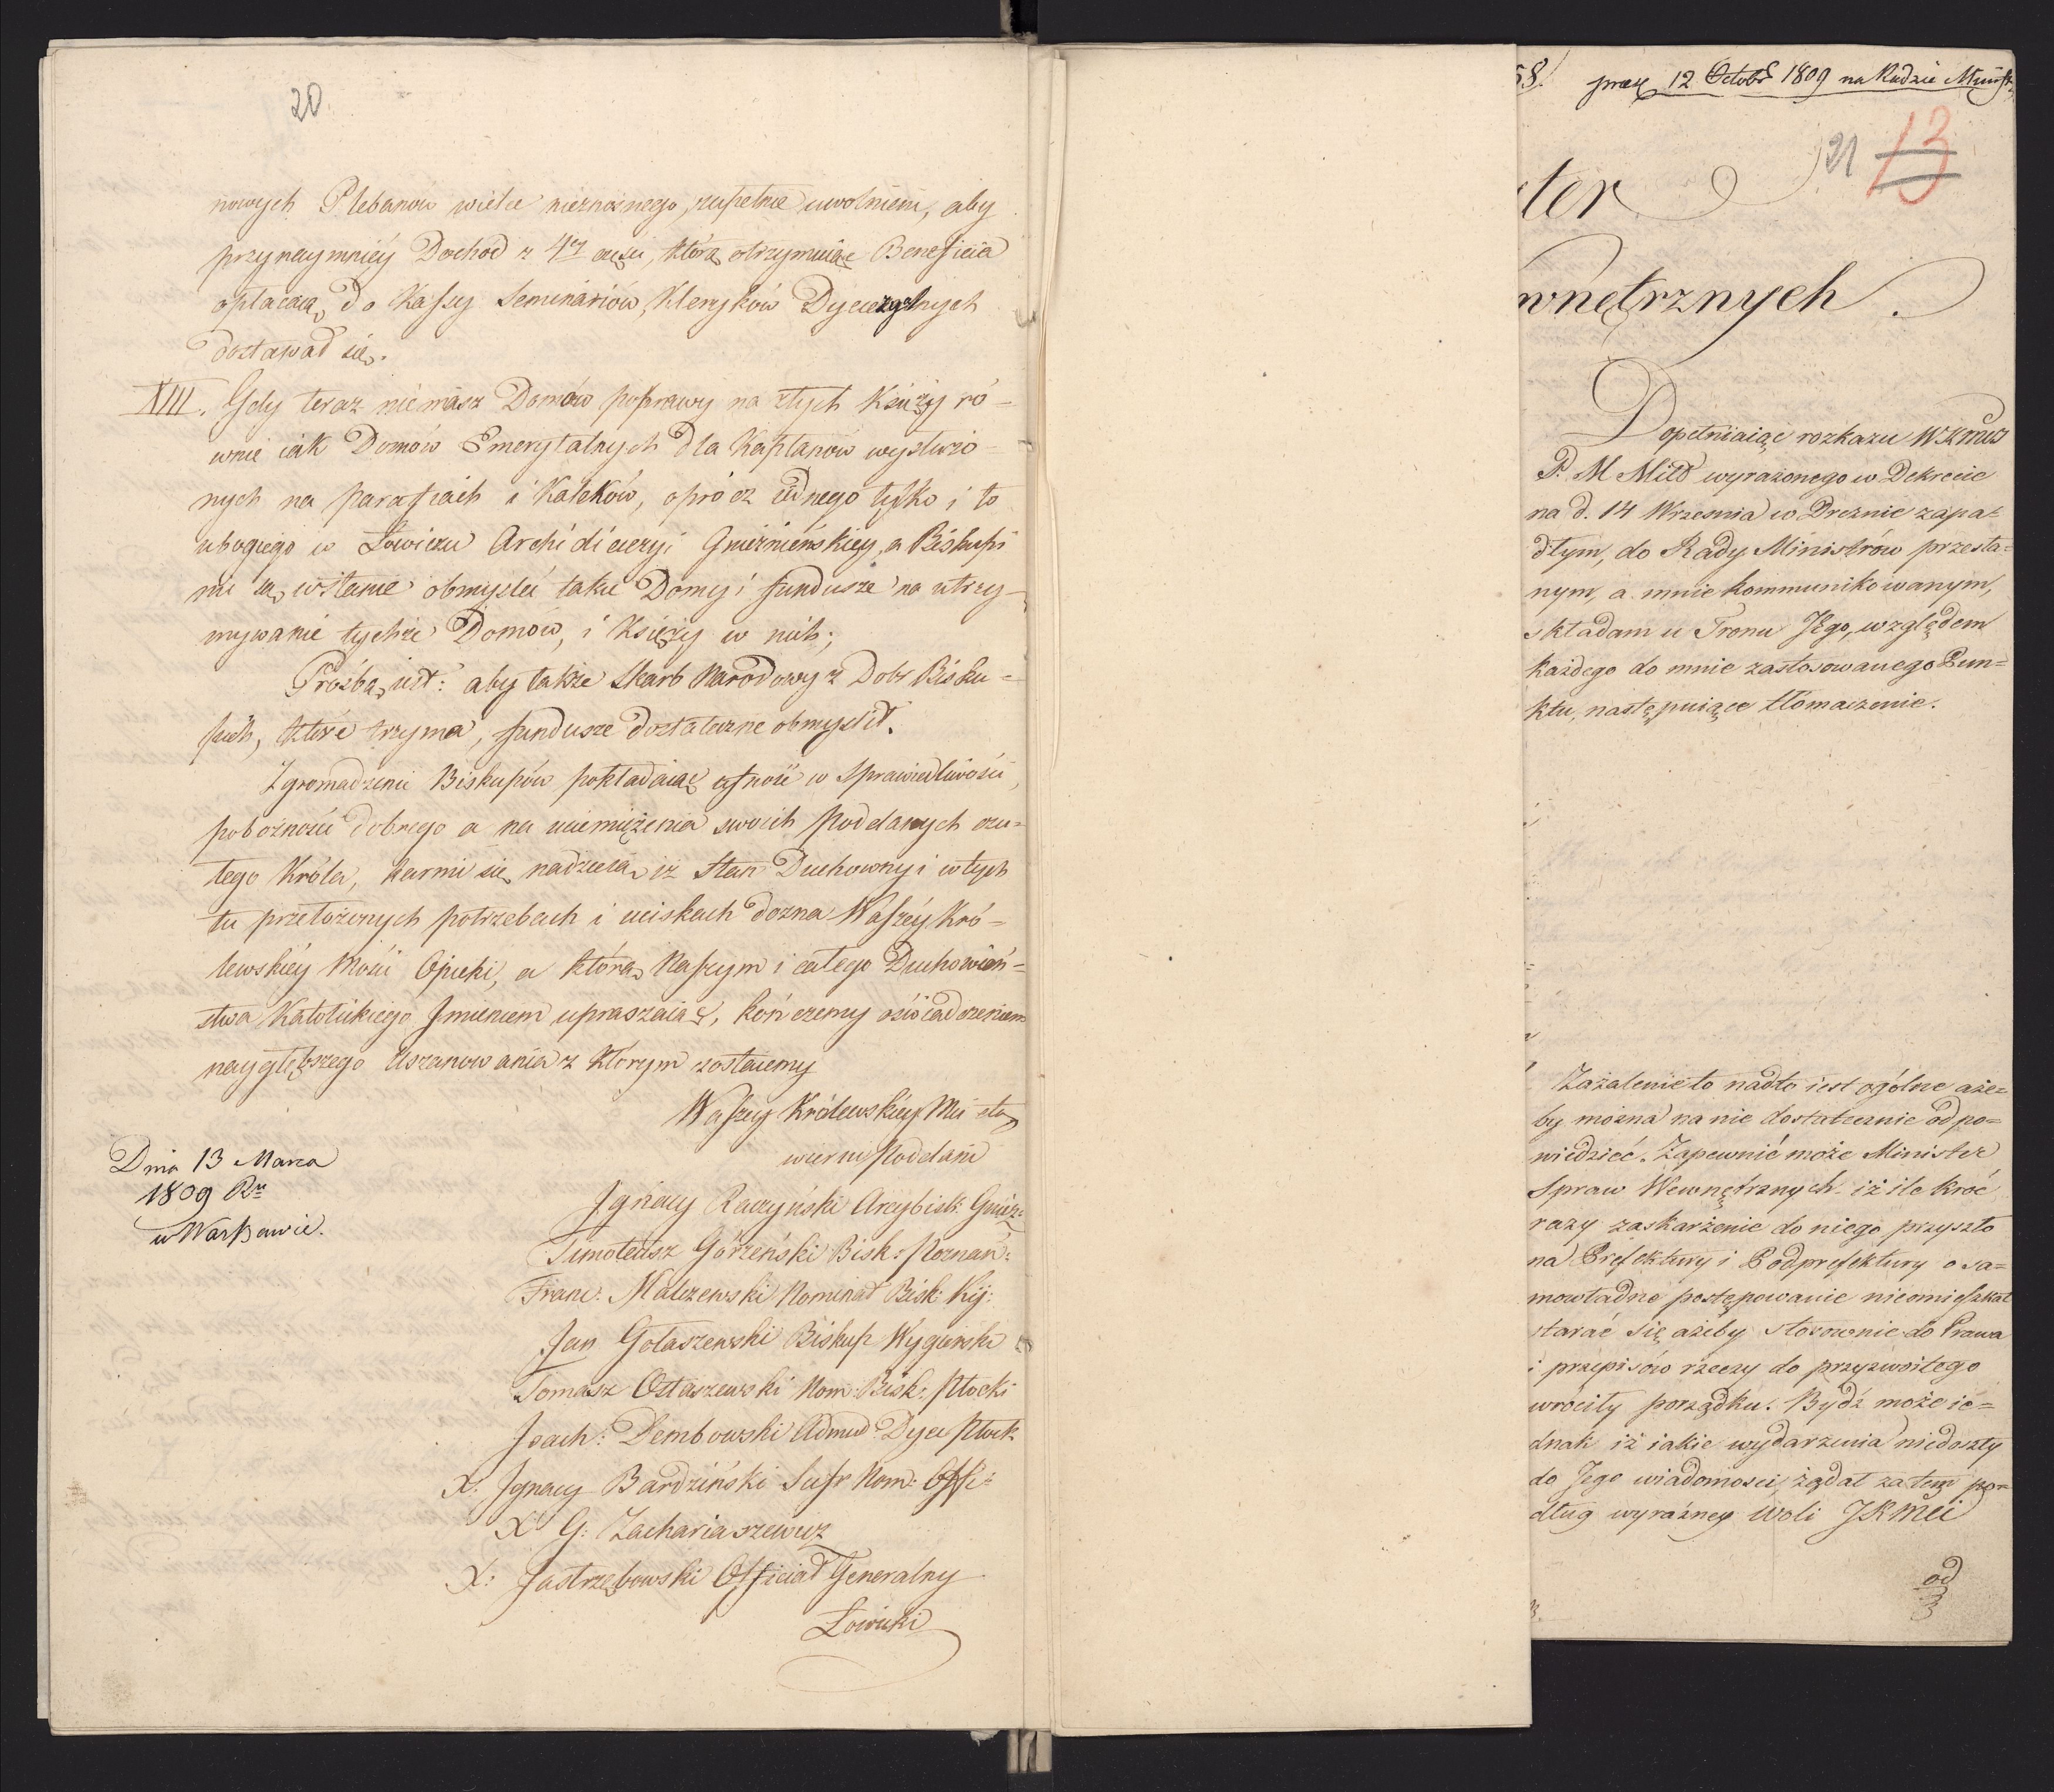 20
nowych Plebanow wielce nieznosnego, zupełnie uwolnieni, aby
przynaymniéy Dochod z 4ey części, którą otrzymuiąc Beneficia
opłacaią, do Kassy Seminariów, Kleryków Dyecezalnych
dostawał się.
XIII. Gdy teraz niémasz Domów poprawy na złych Księży ró-
wnie iak Domów Emerytalnych dla Kapłanów wysłużo-
nych na parafiach i Kaleków, oprócz iednego tylko i to
ubogiego w Łowiczu Archidiecezyi Gnieznieńskiey, a Biskupi
nie są wstanie obmyslić takie Domy i fundusze na utrzy-
mywanie tychże Domów, i Księży w nich;
Proźbą iest: aby także Skarb Narodowy z Dobr Bisku-
pich, które trzyma, fundusze dostateczne obmyslił.
Zgromadzenie Biskupów pokładaiąc ufność w Sprawiedliwości,
pobożności dobrego a na uciemiężenia swoich Poddanych czu-
łego Króla, karmi się nadzieią, iż Stan Duchowny i w tych
tu przełożonych potrzebach i uciskach dozna Waszéy Kró-
lewskiéy Mości Opieki, o którą Naszym i całego Duchowień-
stwa Katolickiego Jmieniem upraszaiąc, kończemy oświadczeniem
naygłębszego Uszanowania z którym zostaiemy
Waszey Królewskiéy Mci
wierni Poddani
Dnia 13 Marca
1809 Ru
w Warszawie.
Jgnacy Raczyński Arcybisk: Gniez:
Timoteusz Górzeński Bisk: Poznań:
Franc: Malczewski Nominat Bisk: Kij:
Jan Gołaszewski Biskup Wygierski
Tomasz Ostaszewski Nom: Bisk: Płocki
Joach: Dembowski Admin Dyec Płock
X. Jgnacy Bardziński Sufr Nom: Offi:
X G: Zachariaszewicz
X: Jastrzębowski Officiał Generalny
Łowicki
58. praes 12 Octobr 1809 na Radzie Minist
21 13
ter
wnętrznych.
Dopełniaiąc rozkazu WKMci
P. M Mił wyrażonego w Dekrecie
na d. 14 Wrzesnia w Dreznie zapa-
dłym, do Rady Ministrów przesła-
nym, a mnie kommunikowanym,
składam u Tronu Jego, względem
każdego do mnie zastosowanego Pun-
ktu, następuiące tłómaczenie.
Zażalenie to nadto iest ogólne aże-
by można na nie dostatecznie odpo-
wiedzieć. Zapewnić może Minister
Spraw Wewnętrznych iż ile kroć
razy zaskarżenie do niego przyszło
na Prefektury i Podprefektury o sa-
mowładne postępowanie nieomieszkał
starać się ażeby stosownie do Prawa
i przepisów rzeczy do przyzwoitego
wróciły porządku. Bydź może ie-
dnak iż iakie wydarzenia niedoszły
do Jego wiadomości, żądał zatem po-
dług wyraźney Woli JKMci
od